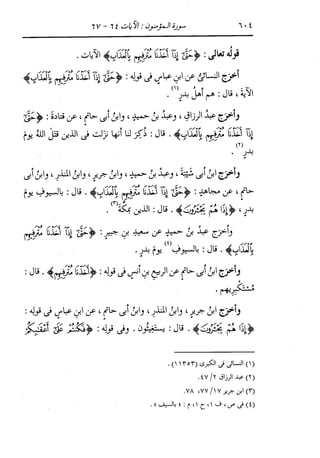 ٦٠٤ سورة المؤمنون : الآيات ٦٤ - ٦٧
قولُه تعالى : ﴿حَتَّىٰٓ إِذَآ أَخَذْنَا مُتْرَفِيهِم بِٱلْعَذَابِ﴾ الآيات .
أخرَج النسائىُّ عن ابنِ عباسٍ فى قولِه : ﴿حَتَّىٰٓ إِذَآ أَخَذْنَا مُتْرَفِيهِم بِٱلْعَذَابِ﴾
الآية ، قال : هم أهلُ بدرٍ(١) .
وأخرَج عبدُ الرزاقِ ، وعبدُ بنُ حميدٍ ، وابنُ أبى حاتمٍ ، عن قتادةَ : ﴿حَتَّىٰٓ
إِذَآ أَخَذْنَا مُتْرَفِيهِم بِٱلْعَذَابِ﴾ . قال : ذُكِر لنا أنها نزَلت فى الذين قتَل اللهُ يومَ
بدرٍ(٢) .
وأخرَج ابنُ أبى شيبةَ ، وعبدُ بنُ حميدٍ ، وابنُ جريرٍ ، وابنُ المنذرِ ، وابنُ أبى
حاتمٍ ، عن مجاهدٍ : ﴿حَتَّىٰٓ إِذَآ أَخَذْنَا مُتْرَفِيهِم بِٱلْعَذَابِ﴾ . قال : بالسيوفِ يومَ
بدرٍ ، ﴿إِذَا هُمْ يَجْـَٔرُونَ﴾ . قال : الذين بمكةَ(٣) .
وأخرَج عبدُ بنُ حميدٍ عن سعيدِ بنِ جبيرٍ : ﴿حَتَّىٰٓ إِذَآ أَخَذْنَا مُتْرَفِيهِم
بِٱلْعَذَابِ﴾ . قال : بالسيوفِ(٤) يومَ بدرٍ .
وأخرَج ابنُ أبى حاتمٍ عن الربيعِ بنِ أنسٍ فى قولِه : ﴿أَخَذْنَا مُتْرَفِيهِم﴾ . قال :
مُستكبِريهم .
وأخرَج ابنُ جريرٍ ، وابنُ المنذرِ ، وابنُ أبى حاتمٍ ، عن ابنِ عباسٍ فى قولِه :
﴿إِذَا هُمْ يَجْـَٔرُونَ﴾ . قال : يستغيثون . وفى قولِه : ﴿فَكُنتُمْ عَلَىٰٓ أَعْقَـٰبِكُمْ
(١) النسائى فى الكبرى (١١٣٥٣) .
(٢) عبد الرزاق ٤٧/٢ .
(٣) ابن جرير ٧٧/١٧ ، ٧٨ .
(٤) فى ص ، ف ١ ، ح ١ ، م : « بالسيف » .